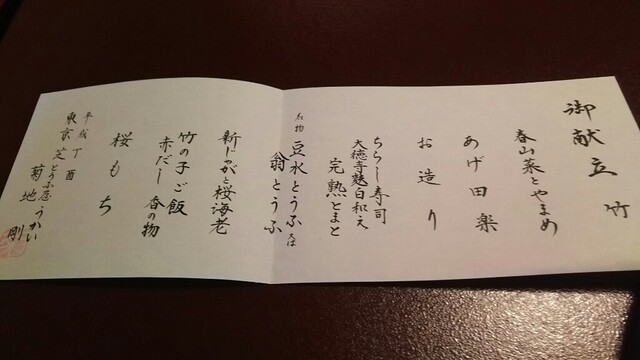 御献立 竹
春山菜とやまめ
あげ田楽
お造り
ちらし寿司
大徳寺麩白和え
完熟とまと
名物 豆水とうふ 又は
翁とうふ
新じゃがと桜海老
竹の子ご飯
赤だし 香の物
桜もち
平成丁酉
東京芝とうふ屋うかい
菊地 剛